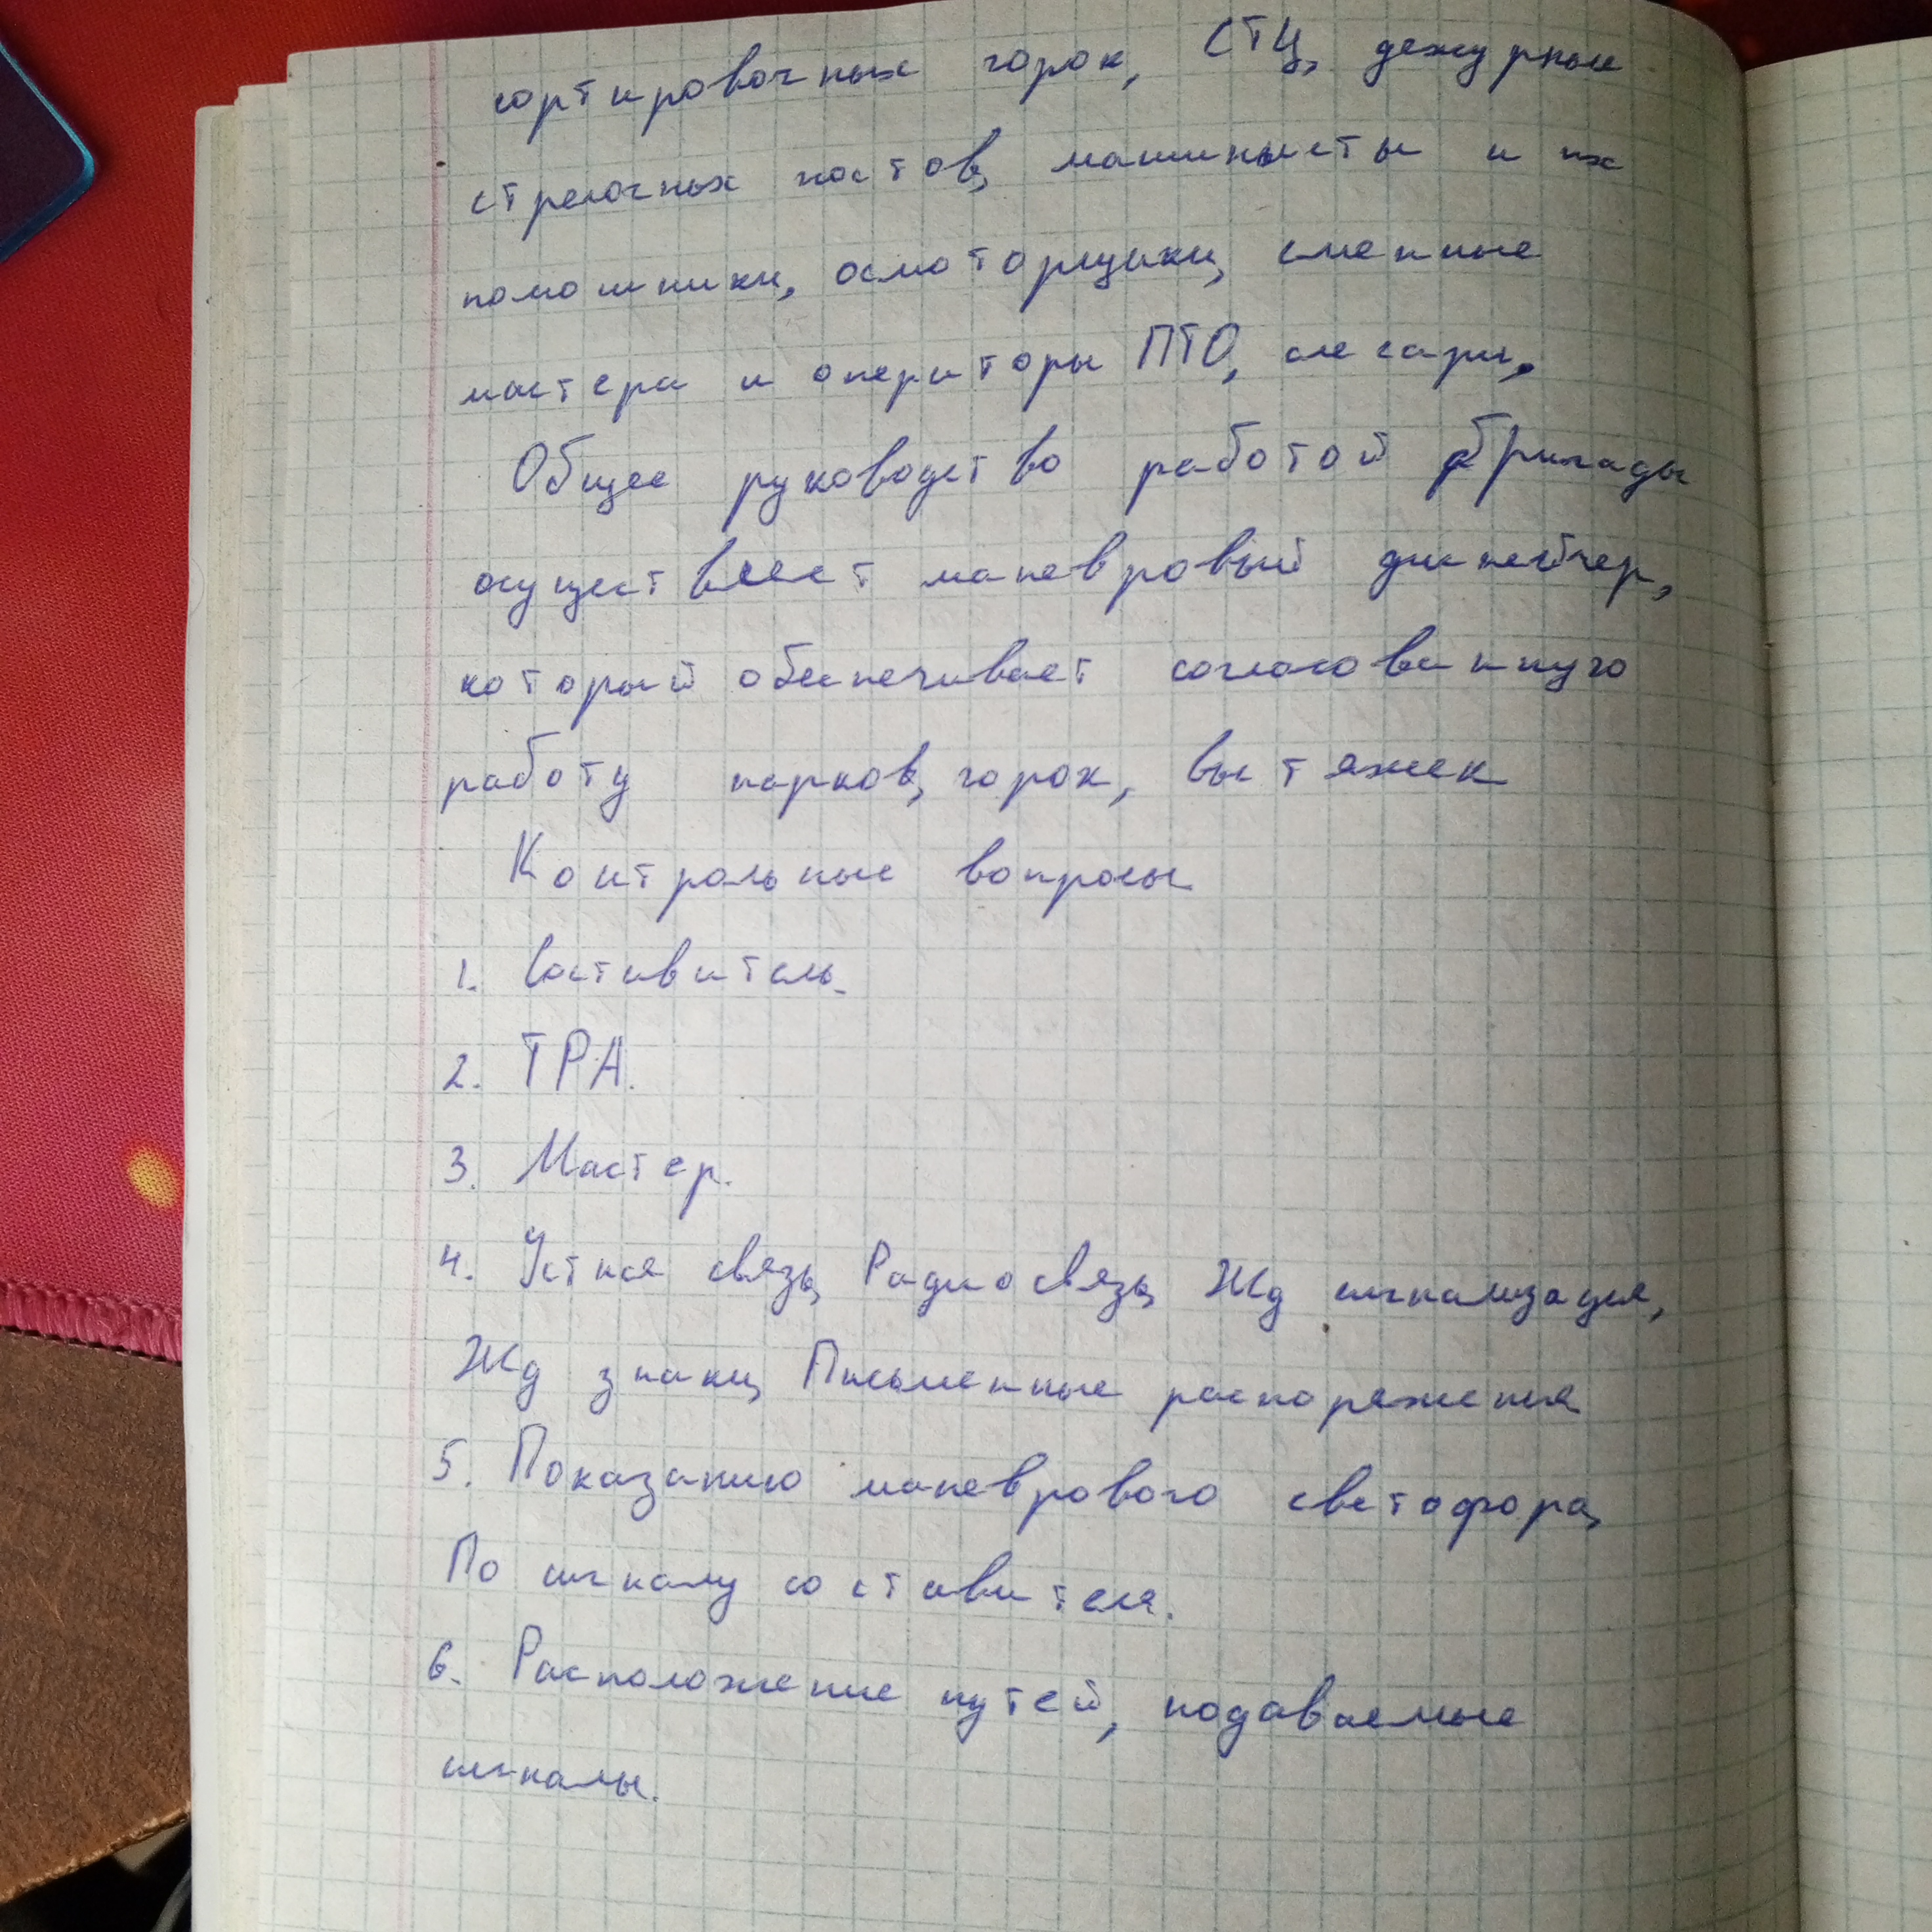 сортировочных горок, СТЦ, дежурные
стрелочных постов, машинисты и их
помошники, осмоторщики, сменные
мастера и операторы ПТО, слесари.
Общее руководство работой бригады
осуществляет маневровый диспетчер,
который обеспечивает согласованную
работу парков, горок, вытяжек
Контрольные вопросы
1. Составитель.
2. ТРА.
3. Мастер.
4. Устная связь, Радиосвязь, Жд сигнализация,
Жд знаки, Письменные распоряжения
5. Показанию маневрового светофора,
По сигналу составителя.
6. Расположение путей, подаваемые
сигналы.